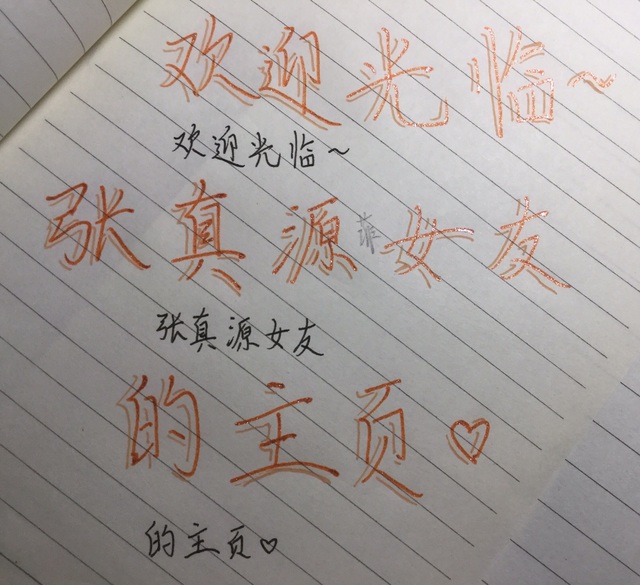 欢迎光临~
欢迎光临~
张真源女友
张真源女友
的主页♡
的主页♡